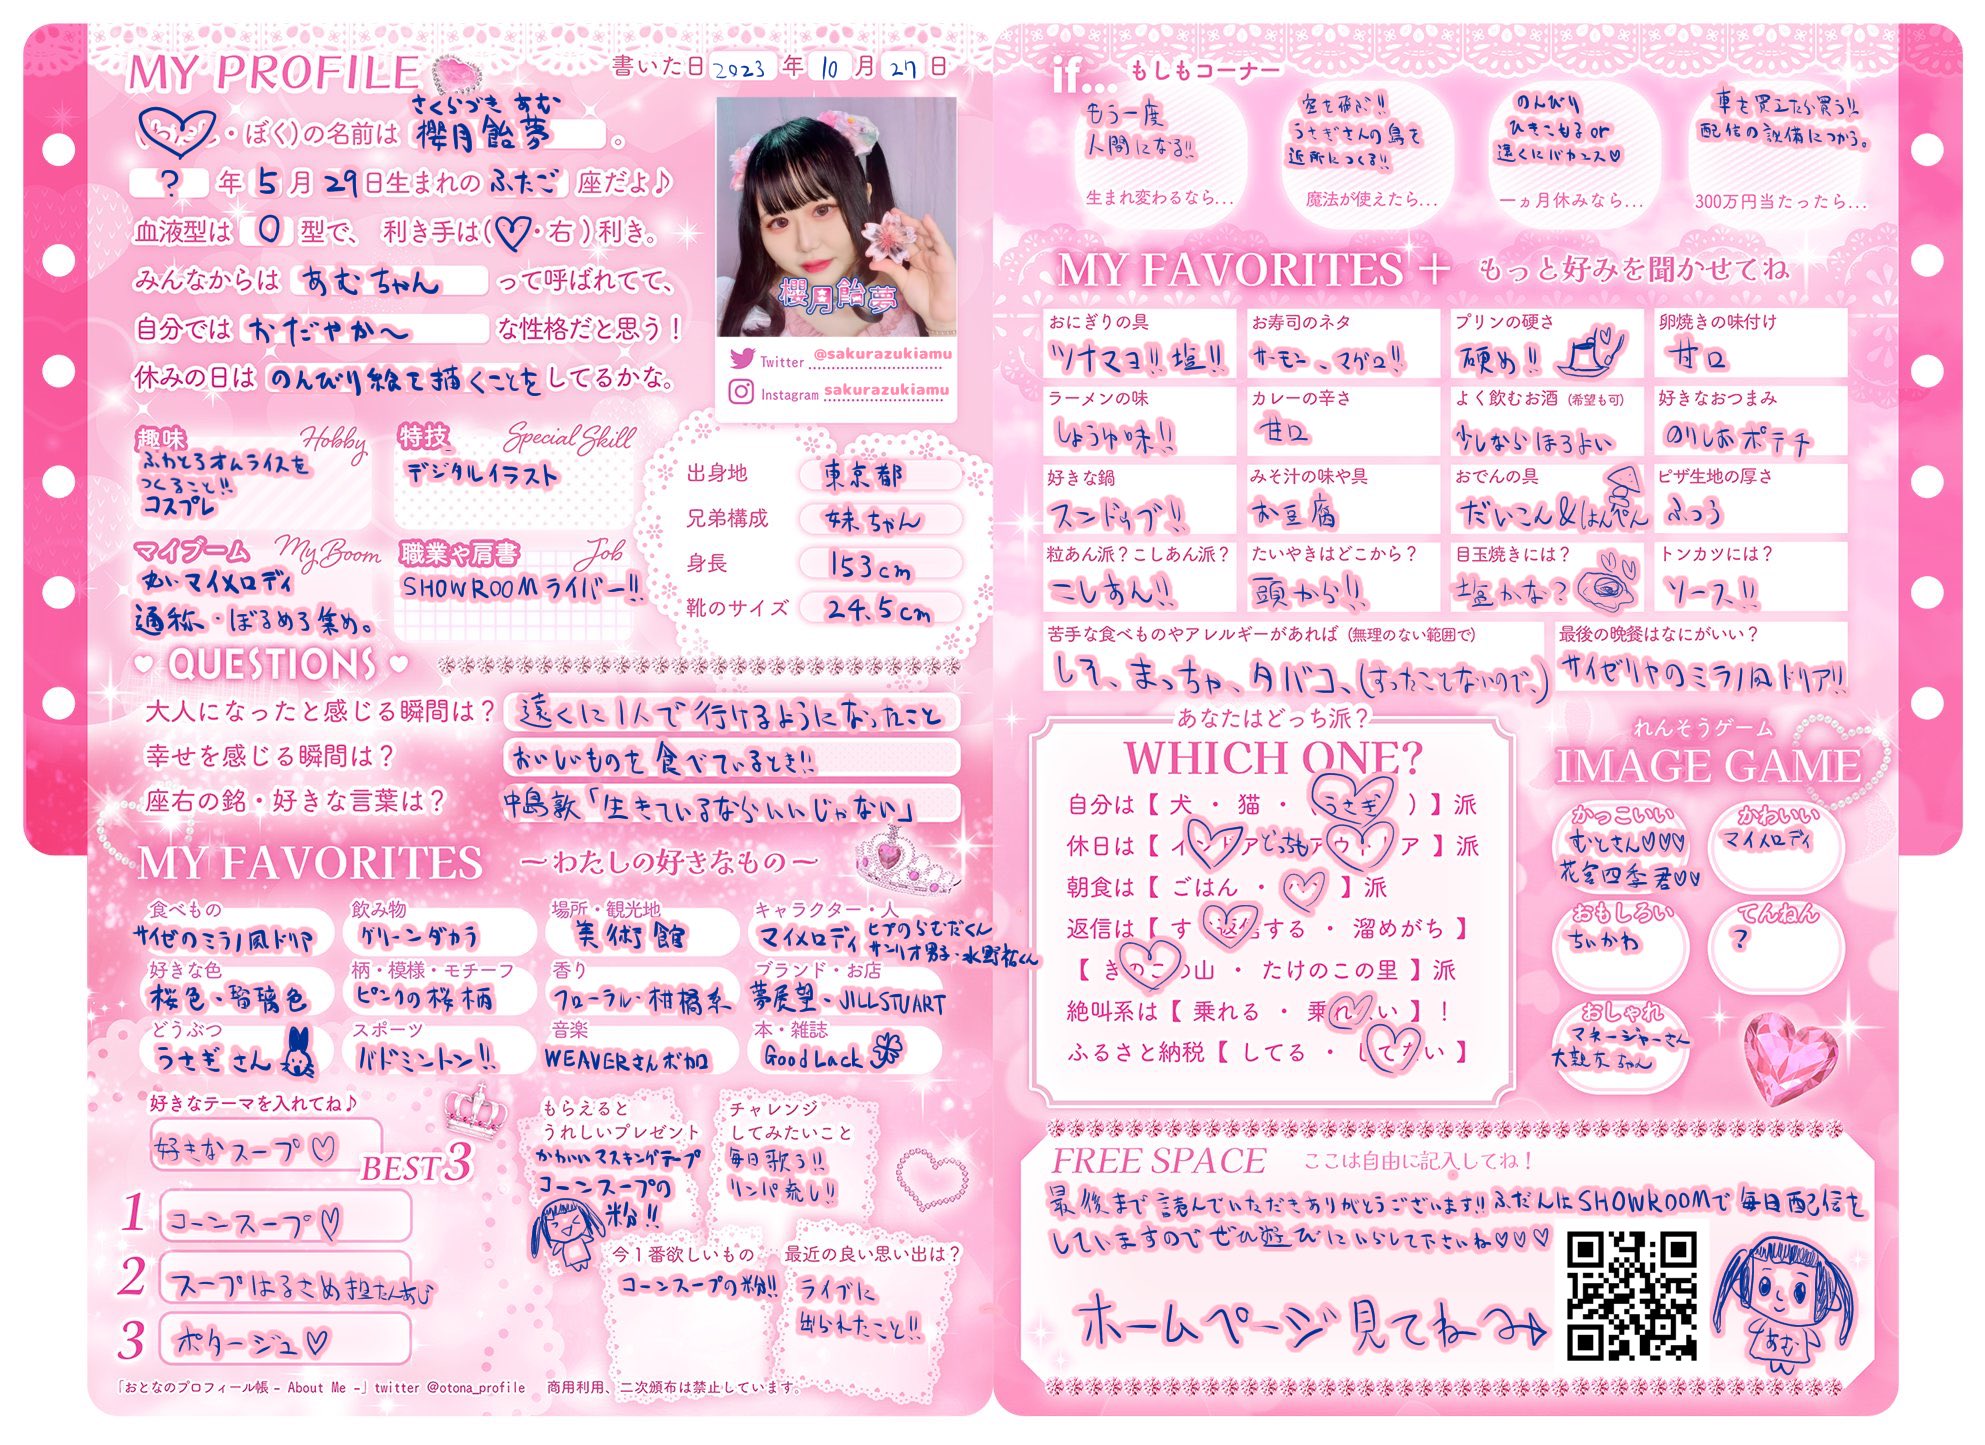 MY PROFILE
書いた日 2023 年 10 月 27 日
さくらづき あむ
・ぼく)の名前は 櫻月飴夢 。
? 年 5 月 29 日生まれの ふたご 座だよ♪
血液型は O 型で、 利き手は(♡・右)利き。
みんなからは あむちゃん って呼ばれてて、
自分では おだやか〜 な性格だと思う!
休みの日は のんびり絵を描くことを してるかな。
櫻月飴夢
Twitter @sakurazukiamu
Instagram sakurazukiamu
趣味 Hobby
ふわとろオムライスを
つくること!!
コスプレ
特技 Special Skill
デジタルイラスト
マイブーム My Boom
丸いマイメロディ
通称・ぼるめろ集め。
職業や肩書 Job
SHOWROOMライバー!!
出身地 東京都
兄弟構成 妹ちゃん
身長 153cm
靴のサイズ 24.5cm
♥ QUESTIONS ♥
大人になったと感じる瞬間は? 遠くに1人で行けるようになったこと
幸せを感じる瞬間は? おいしいものを食べているとき!!
座右の銘・好きな言葉は? 中島敦「生きているならいいじゃない」
MY FAVORITES 〜わたしの好きなもの〜
食べもの
サイゼのミラノ風ドリア
飲み物
グリーンダカラ
場所・観光地
美術館
キャラクター・人
マイメロディ ヒプのらむだくん
サンリオ男子・水野祐くん
好きな色
桜色・瑠璃色
柄・模様・モチーフ
ピンクの桜柄
香り
フローラル・柑橘系
ブランド・お店
夢展望・JILLSTUART
どうぶつ
うさぎさん
スポーツ
バドミントン!!
音楽
WEAVERさんボカロ
本・雑誌
Good Lack
好きなテーマを入れてね♪
好きなスープ♡
BEST3
1 コーンスープ♡
2 スープはるさめ担たんあじ
3 ポタージュ♡
もらえると
うれしいプレゼント
かわいいマスキングテープ
コーンスープの
粉!!
チャレンジ
してみたいこと
毎日歌う!!
リンパ流し!!
今1番欲しいもの
コーンスープの粉!!
最近の良い思い出は?
ライブに
出られたこと!!
「おとなのプロフィール帳 - About Me -」twitter @otona_profile 商用利用、二次頒布は禁止しています。
if... もしもコーナー
もう一度
人間になる!!
生まれ変わるなら...
空を飛ぶ!!
うさぎさんの島を
近所につくる!!
魔法が使えたら...
のんびり
ひきこもるor
遠くにバカンス♡
一ヵ月休みなら...
車を買えたら買う!!
配信の設備につかう。
300万円当たったら...
MY FAVORITES + もっと好みを聞かせてね
おにぎりの具
ツナマヨ!!塩!!
お寿司のネタ
サーモン、マグロ!!
プリンの硬さ
硬め!!
卵焼きの味付け
甘口
ラーメンの味
しょうゆ味!!
カレーの辛さ
甘口
よく飲むお酒 (希望も可)
少しならほろよい
好きなおつまみ
のりしおポテチ
好きな鍋
スンドゥブ!!
みそ汁の味や具
お豆腐
おでんの具
だいこん&はんぺん
ピザ生地の厚さ
ふつう
粒あん派?こしあん派?
こしあん!!
たいやきはどこから?
頭から!!
目玉焼きには?
塩かな?
トンカツには?
ソース!!
苦手な食べものやアレルギーがあれば (無理のない範囲で)
しそ、まっちゃ、タバコ、(すったことないので、)
最後の晩餐はなにがいい?
サイゼリヤのミラノ風ドリア!!
あなたはどっち派?
WHICH ONE?
自分は【 犬 ・ 猫 ・ (うさぎ)】派
休日は【 インドア どっちも アウトドア 】派
朝食は【 ごはん ・ 】派
返信は【 すぐ返信する ・ 溜めがち 】
【 きのこの山 ・ たけのこの里 】派
絶叫系は【 乗れる ・ 乗れない 】!
ふるさと納税【 してる ・ してない 】
れんそうゲーム
IMAGE GAME
かっこいい
むとさん♡♡♡
花宮四季君♡♡
かわいい
マイメロディ
おもしろい
ちいかわ
てんねん
?
おしゃれ
マネージャーさん
大親友ちゃん
FREE SPACE ここは自由に記入してね!
最後まで読んでいただきありがとうございます!!ふだんはSHOWROOMで毎日配信を
していますのでぜひ遊びにいらして下さいね♡♡♡
ホームページ見てね〜→
あむ